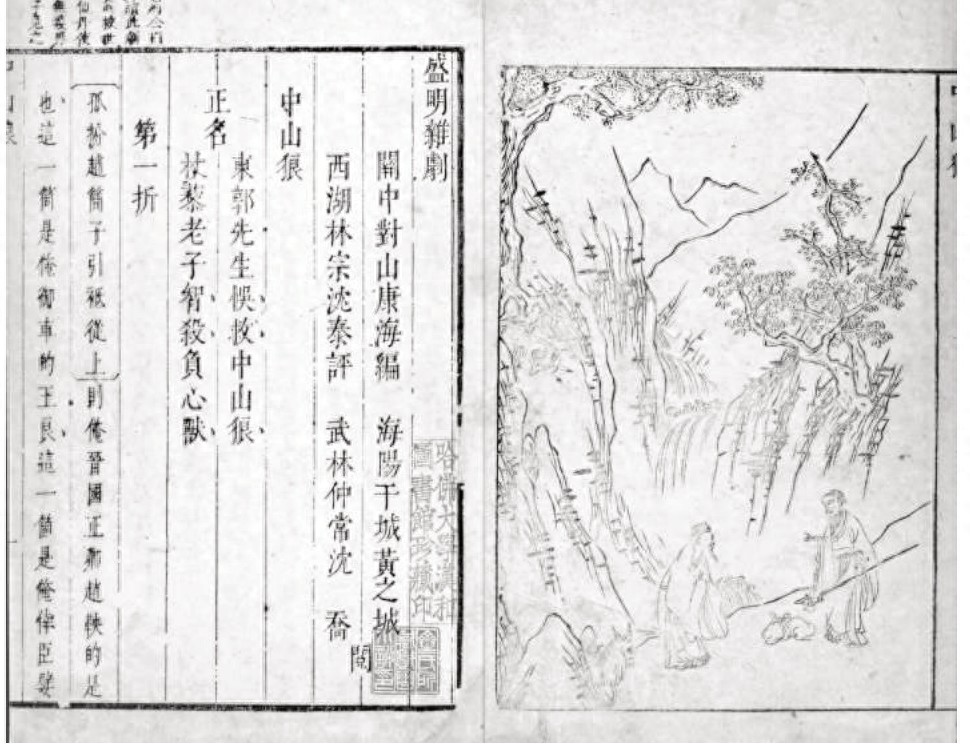 中山狼
盛明雜劇
關中對山康海編　海陽干城黃之城
西湖林宗沈泰評　武林仲常沈　喬
閱
中山狼
正名
東郭先生悞救中山狼
杖藜老子智殺負心獸
第一折
孤扮趙簡子引祗從上則俺晉國正卿趙鞅的是
也這一箇是俺御車的王良這一箇是俺倖臣嬖
哈佛大學漢和
圖書館珍藏印